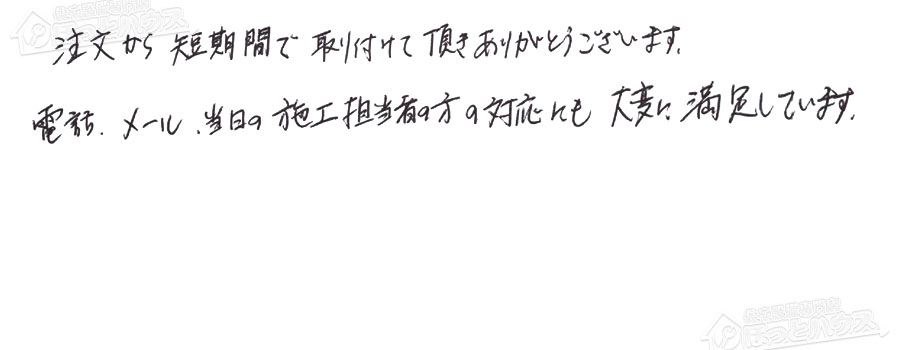 住宅設備専門店
ほっとハウス
注文から短期間で取り付けて頂きありがとうございます。
電話、メール、当日の施工担当者の方の対応にも大変に満足しています。
住宅設備専門店
ほっとハウス